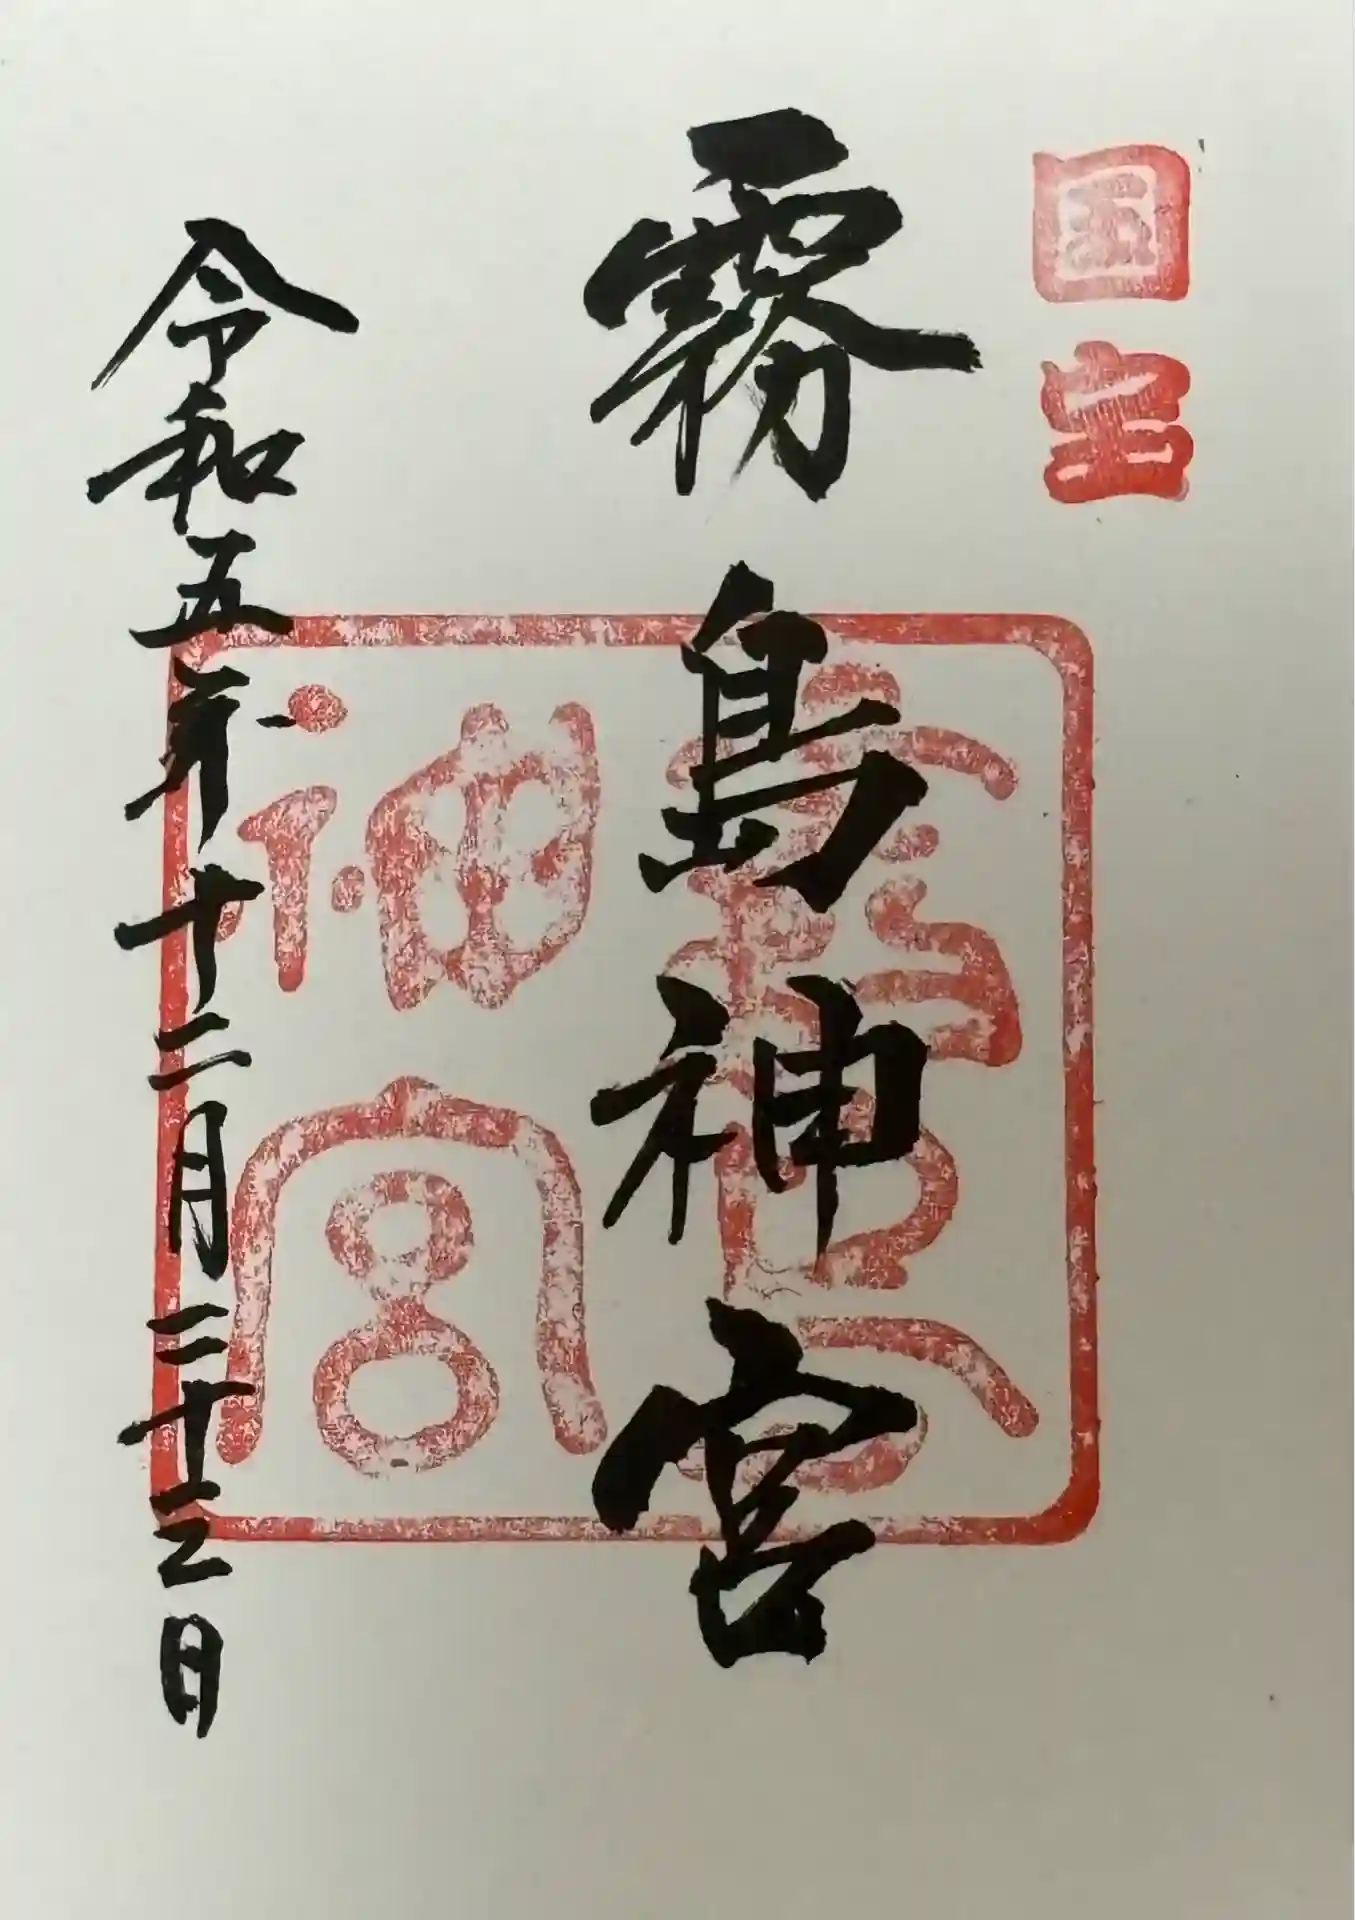 国宝
霧島神宮
霧島
神宮
令和五年十二月二十三日